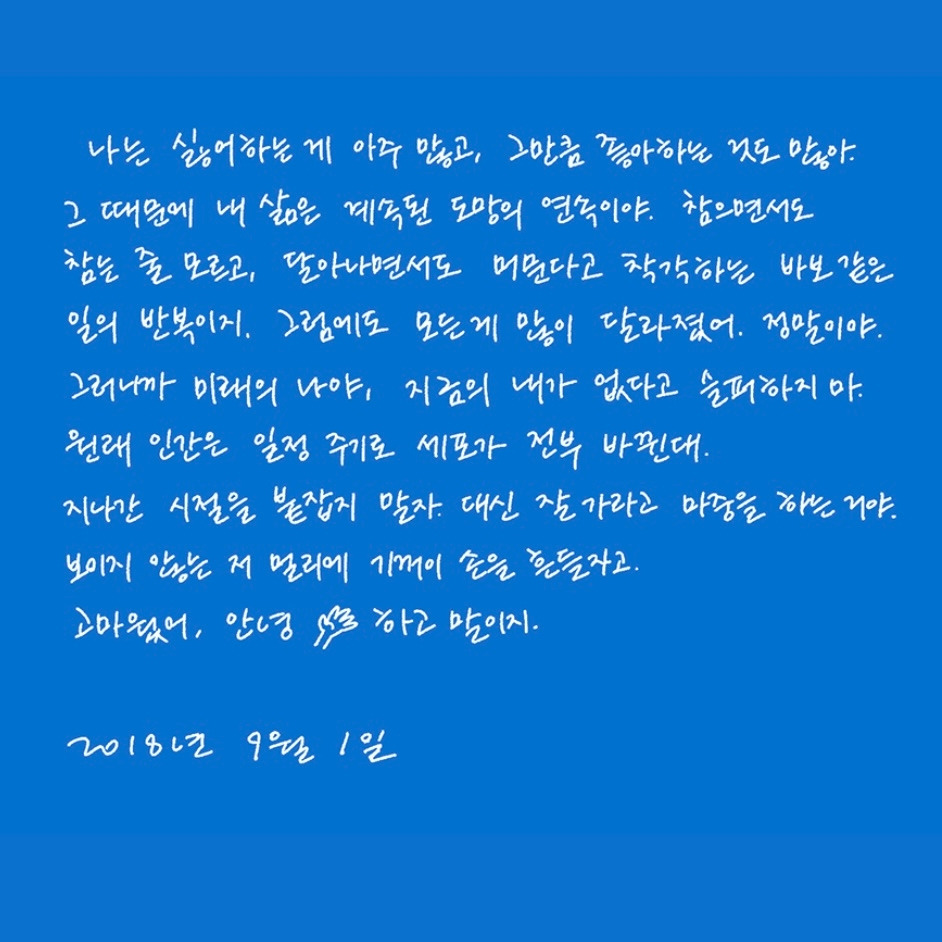 나는 싫어하는 게 아주 많고, 그만큼 좋아하는 것도 많아.
그 때문에 내 삶은 계속된 도망의 연속이야. 참으면서도
참는 줄 모르고, 달아나면서도 머문다고 착각하는 바보 같은
일의 반복이지. 그럼에도 모든게 많이 달라졌어. 정말이야.
그러니까 미래의 나야, 지금의 내가 없다고 슬퍼하지 마.
원래 인간은 일정 주기로 세포가 전부 바뀐대.
지나간 시절을 붙잡지 말자. 대신 잘 가라고 마중을 하는 거야.
보이지 않는 저 멀리에 기꺼이 손을 흔들자고.
고마웠어, 안녕 하고 말이지.
2018년 9월 1일